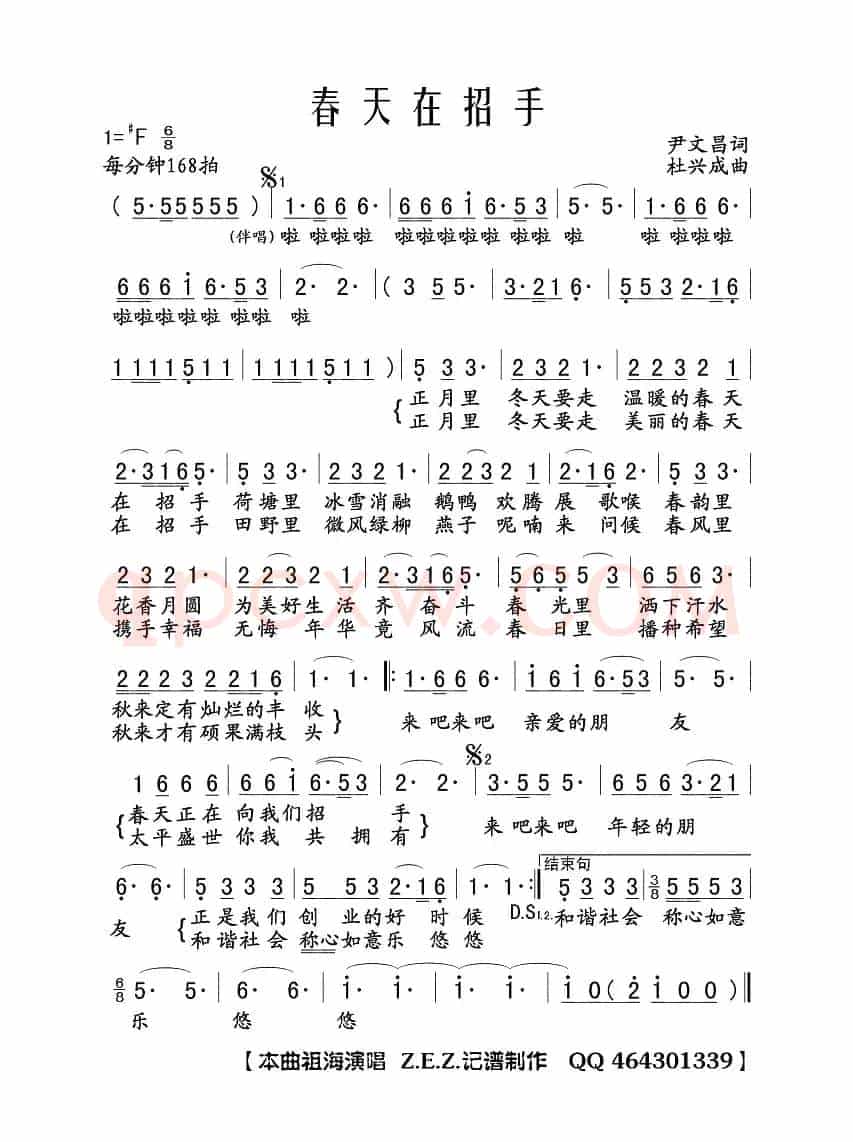 春天在招手
1=♯F 6/8
尹文昌词
每分钟168拍
杜兴成曲
𝄋1
( 5·55555 ) | 1·666· | 6661 6·53 | 5·5· | 1·666· |
(伴唱)啦 啦啦啦 啦啦啦啦啦 啦 啦 啦 啦啦啦
6661 6·53 | 2·2· | (3 55· | 3·216· | 553 2·16 |
啦啦啦啦啦 啦啦 啦
1 111511 | 1 111511 | 1 111511 ) | 5 33· | 2321· | 2232 1 |
正月里 冬天要走 温暖的春天
正月里 冬天要走 美丽的春天
2·3165· | 5 33· | 2321· | 2232 1 | 2·162· | 5 33· |
在 招 手 荷塘里 冰雪消融 鹅鸭 欢腾展 歌喉 春韵里
在 招 手 田野里 微风绿柳 燕子 呢喃来 问候 春风里
2321· | 2232 1 | 2·3165· | 5653 53· | 6563· |
花香月圆 为美好生活 齐 奋斗 春 光里 洒下汗水
携手幸福 无悔 年华 竞 风流 春 日里 播种希望
qpcxw.COM
2223 2216 | 1·1· |: 1·666· | 1161 6·53 | 5·5· |
秋来定有灿烂的丰 收 来 吧来吧 亲爱的朋 友
秋来才有硕果满枝 头
𝄋2
1666 | 661 6·53 | 2·2· | 3·555· | 656 3·21 |
春天正在 向我们招 手 来 吧来吧 年轻的朋
太平盛世 你我 共 拥 有
结束句
6·6· | 5333 | 5 53 2·16 | 1·1· :| 5333 | 3/8 55553 |
友 正是我们 创 业的好 时 候 D.S1.2. 和谐社会 称心如意
和谐社会 称心如意乐 悠 悠
6/8 5·5· | 6·6· | 1·1· | 1·1· | 10(2 100) ‖
乐 悠 悠
【本曲祖海演唱 Z.E.Z.记谱制作 QQ 464301339】